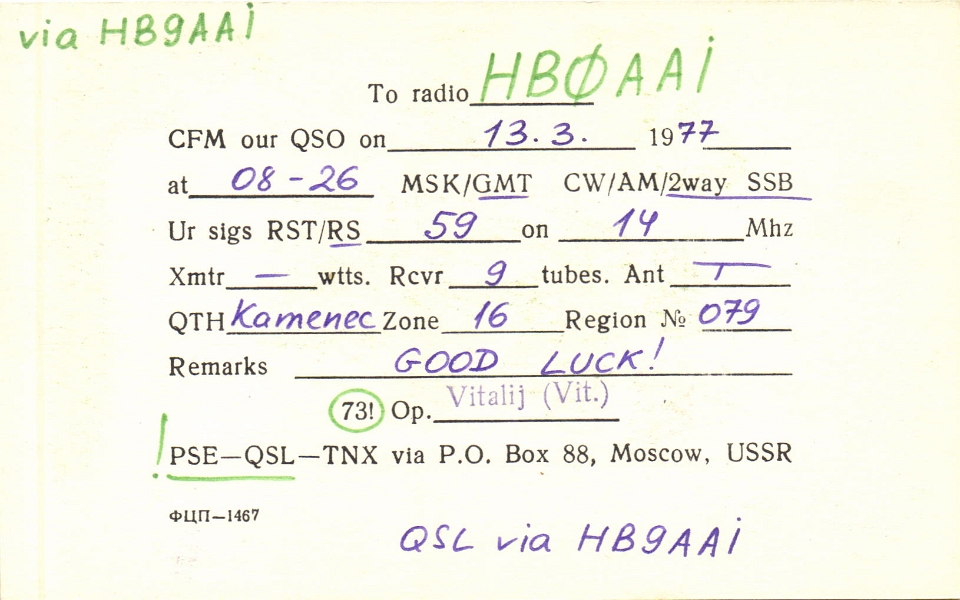 via HB9AAI
To radio HBØAAI
CFM our QSO on 13.3. 1977
at 08-26 MSK/GMT CW/AM/2way SSB
Ur sigs RST/RS 59 on 14 Mhz
Xmtr — wtts. Rcvr 9 tubes. Ant T
QTH Kamenec Zone 16 Region № 079
Remarks GOOD LUCK!
73! Op. Vitalij (Vit.)
! PSE—QSL—TNX via P.O. Box 88, Moscow, USSR
ФЦП—1467
QSL via HB9AAI